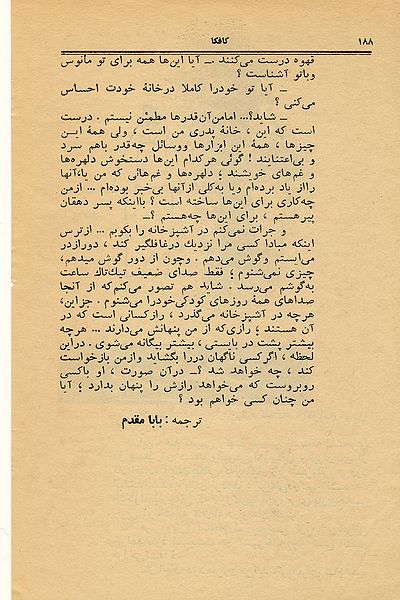 ۱۸۸
کافکا
قهوه درست می‌کنند. ــ آیا این‌ها همه برای تو مانوس
وباتو آشناست ؟
ــ آیا تو خودرا کاملا درخانهٔ خودت احساس
می‌کنی ؟
ــ شاید؟... امامن‌آن‌قدرها مطمئن نیستم . درست
است که این ، خانهٔ پدری من است ، ولی همهٔ ایـن
چیزها ، همهٔ این ابزارها ووسائل چه‌قدر باهم سرد
و بی‌اعتنایند ! گوئی هرکدام این‌ها دستخوش دلهره‌ها
و غم‌های خویشند ؛ دلهره‌ها و غم‌هائی که من یا،آنها
رااز یاد برده‌ام ویا به‌کلی ازآنها بی‌خبر بوده‌ام ... ازمن
چه‌کاری برای این‌ها ساخته است ؟ بااینکه پسر دهقان
پیرهستم ، برای این‌ها چه‌هستم ؟ــ
و جرات نمی‌کنم در آشپزخانه را بکوبم ... ازترس
اینکه مبادا کسی مرا نزدیك درغافلگیر کند ، دورازدر
می‌ایستم وگوش می‌دهم . وچون از دور گوش میدهم،
چیزی نمی‌شنوم ؛ فقط صدای ضعیف تیك‌تاك ساعت
به‌گوشم می‌رسد . شاید هم تصور می‌کنم‌که از آنجا
صداهای همهٔ روزهای کودکی‌خودرا می‌شنوم . جزاین،
هرچه در آشپزخانه می‌گذرد ، رازکسانی است که در
آن هستند ؛ رازی‌که از من پنهانش می‌دارند ... هرچه
بیشتر پشت در بایستی ، بیشتر بیگانه می‌شوی . دراین
لحظه ، اگرکسی ناگهان دررا بگشاید وازمن بازخواست
کند ، چه خواهد شد ؟ــ درآن صورت ، او باکسی
روبروست که می‌خواهد رازش را پنهان بدارد ؛ آیا
من چنان کسی خواهم بود ؟
ترجمه : بابا مقدم